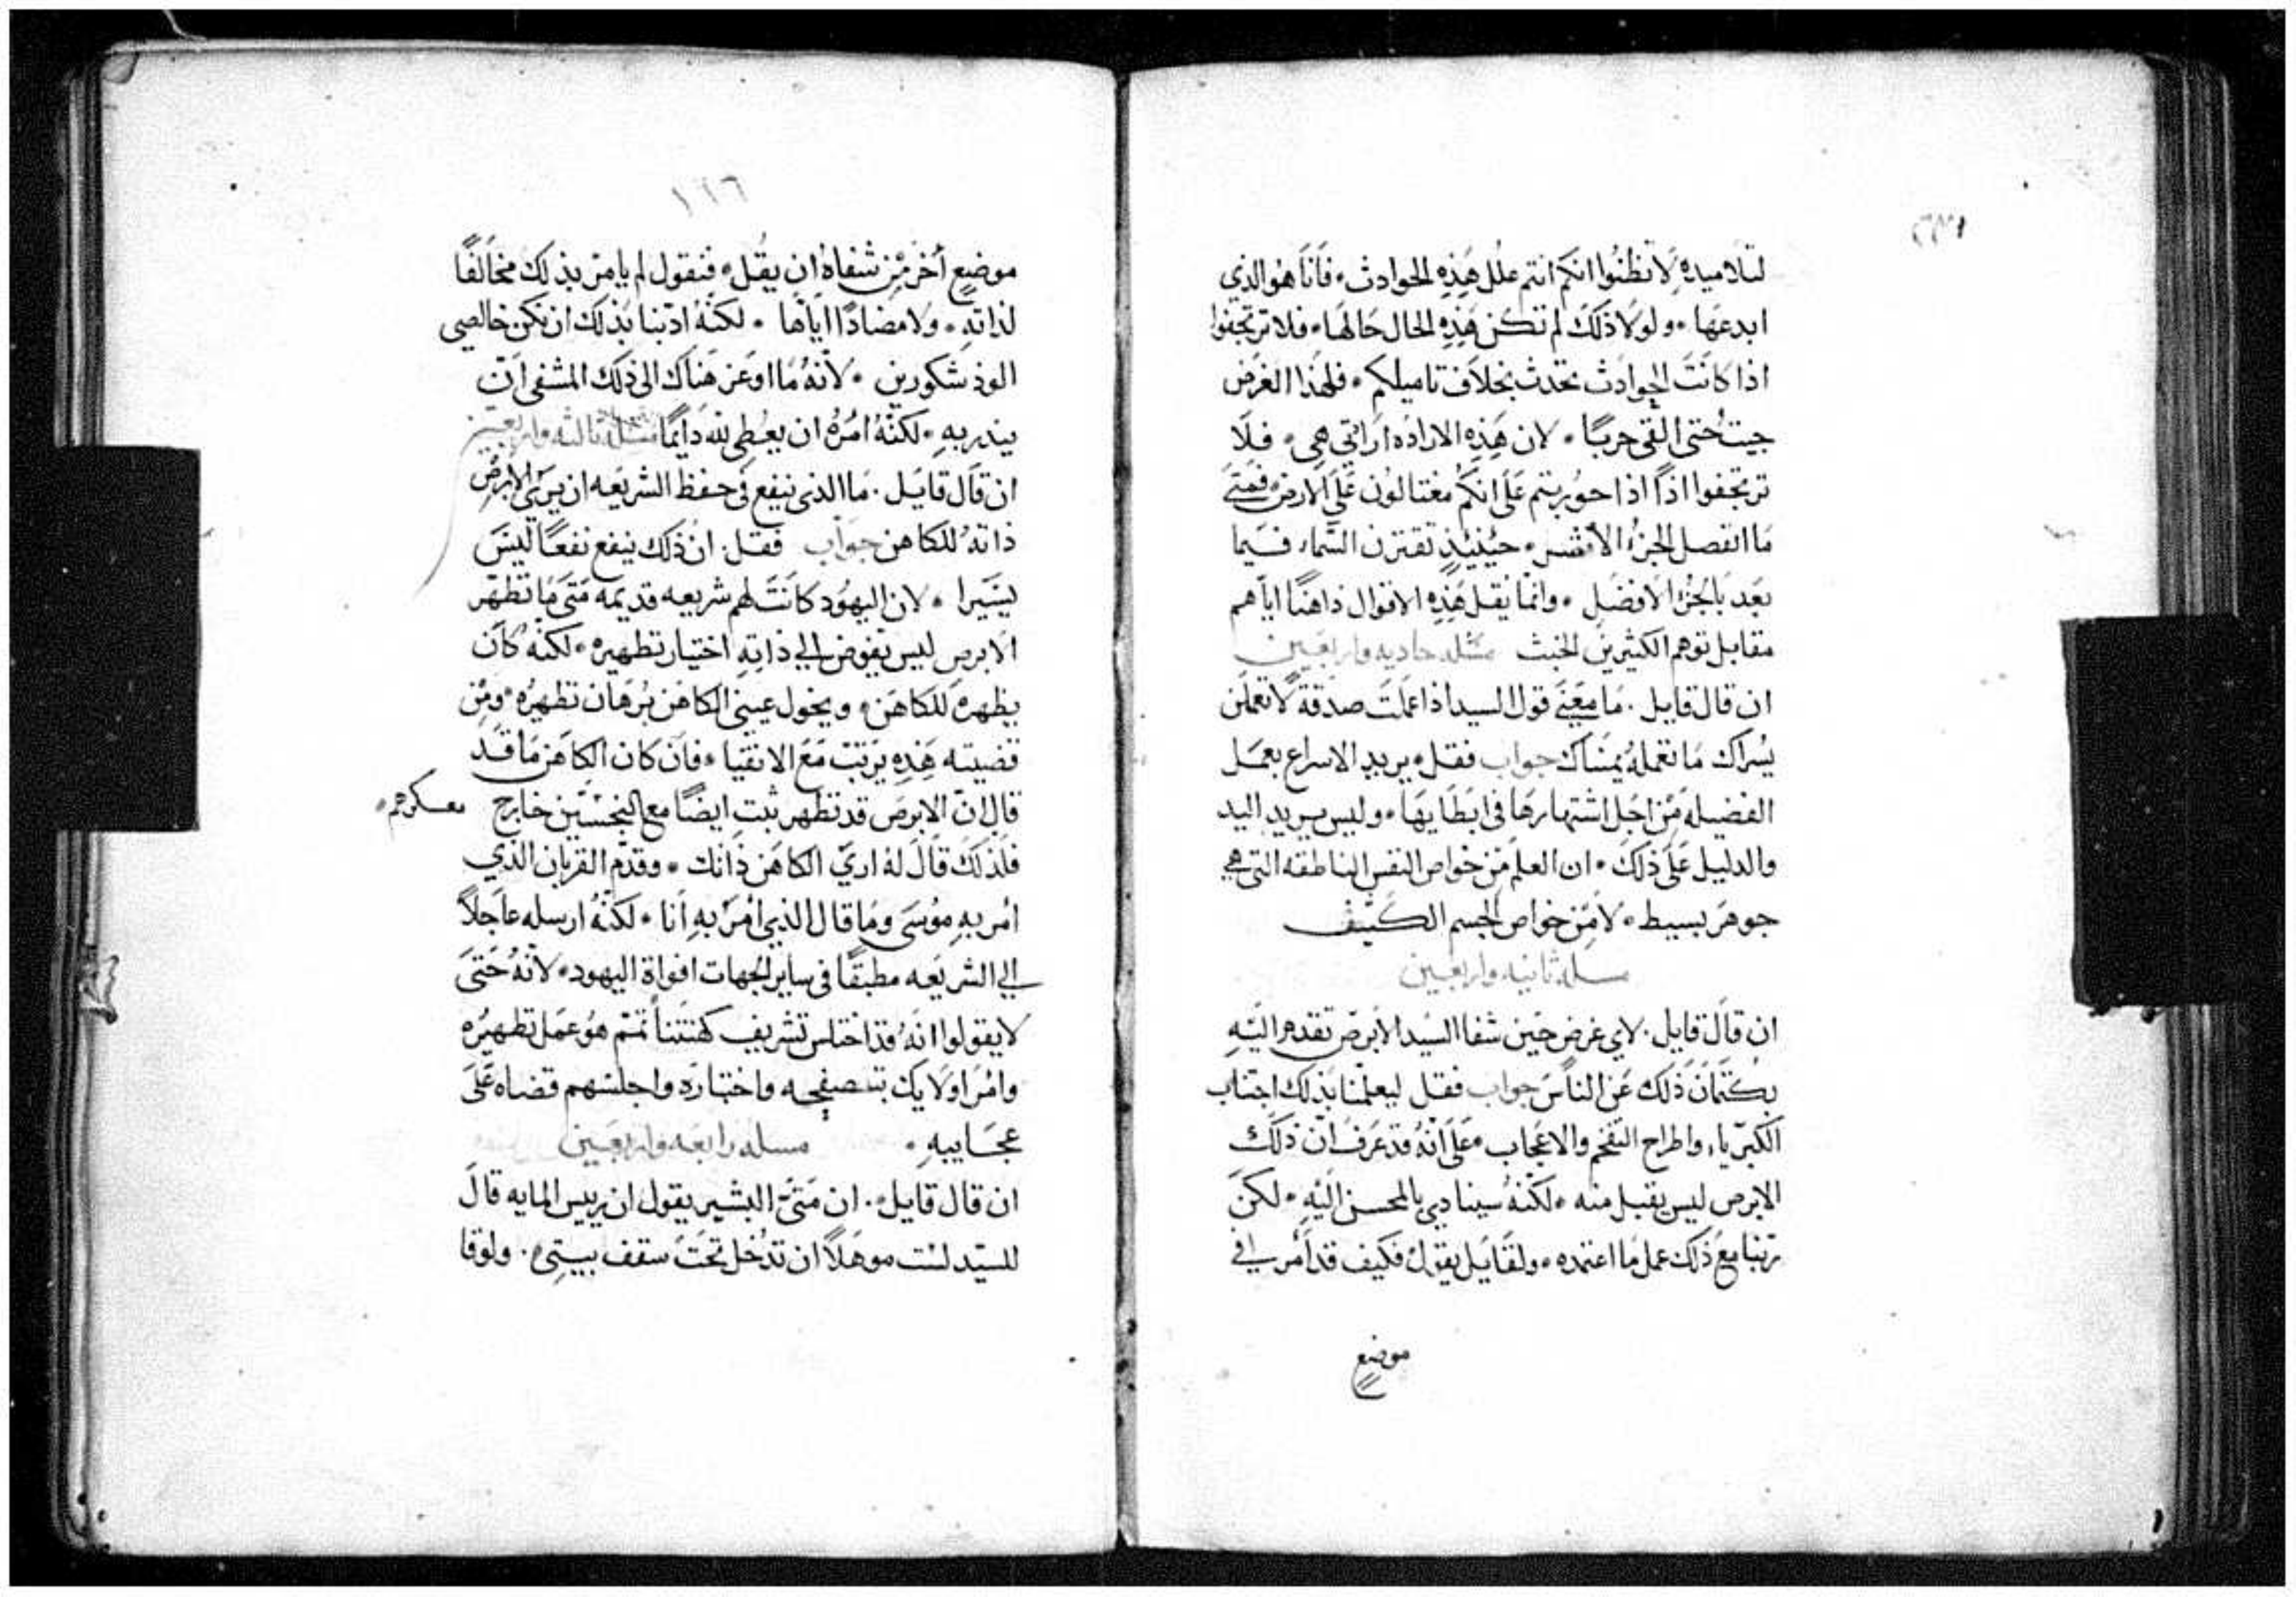 لتلاميده لا تظنوا انكم انتم علل هذه الحوادث فانا هو الذي
ابدعها ولولا ذلك لم تكن هذه الحال حالها فلا ترتجفوا
اذا كانت الحوادث تحدث بخلاف تاميلكم فلهذا الغرض
جيت حتى القي حربا لان هذه الاراده ارادتي هي فلا
ترتجفوا اذا اذا حوربتم على انكم مغتالون على الارض فمتى
ما انفصل الجزء الاشر حينيذ تقترن السماء فيما
بعد بالجزء الافضل وانما يقل هذه الاقوال ذاهنا اياهم
مقابل توهم الكثيرين الخبث مسله حاديه واربعين
ان قال قايل ما معنى قول السيد اذا عملت صدقة لا تعلمن
يسراك ما تعمله يمناك جواب فقل يريد الاسراع بعمل
الفضيله من اجل اشتهارها في ابطايها وليس يريد اليد
والدليل على ذلك ان العلم من خواص النفس الناطقه التي هي
جوهر بسيط لا من خواص الجسم الكثيف
مسله ثانيه واربعين
ان قال قايل لاي غرض حين شفا السيد الابرص تقدم اليه
بكتمان ذلك عن الناس جواب فقل ليعلمنا بذلك اجتناب
الكبرياء واطراح التفخم والاعجاب على انه قد عرف ان ذلك
الابرص ليس يقبل منه لكنه سينادي بالمحسن اليه لكن
رتبنا مع ذلك عمل ما اعتمده ولقايل يقول فكيف قد امر في
موضع
١٢٦
موضع اخر من شفاه ان يقل فنقول لم يامر بذلك مخالفا
لذاته ولا مضادا اياها لكنه ادبنا بذلك ان نكن خالصي
الود شكورين لانه ما اوعز هناك الى ذلك المشفى ان
يندر به لكنه امره ان يعطي لله دايما مسله ثالثه واربعين
ان قال قايل ما الذي نيفع في حفظ الشريعه ان يري الابرص
ذاته للكاهن جواب فقل ان ذلك نيفع نفعا ليس
يسيرا لان اليهود كانت لهم شريعه قديمه متى ما تطهر
الابرص ليس يفوض الي ذاته اختيار تطهيره لكنه كان
يظهره للكاهن ويخول عيني الكاهن برهان تطهيره ومن
قضيته هذه يرتب مع الانقيا فان كان الكاهن ما قد
قال ان الابرص قد تطهر ثبت ايضا مع النجسين خارج معسكرهم
فلذلك قال له اري الكاهن ذاتك وقدم القربان الذي
امر به موسى وما قال الذي امر به انا لكنه ارسله عاجلا
الي الشريعه مطبقا في ساير الجهات افواة اليهود لانه حتى
لا يقولوا انه قد اختلس تشريف كهنتنا تمم هو عمل تطهيره
وامر اولايك بتصفيحه واختباره واجلسهم قضاه على
عجايبه مسله رابعه واربعين
ان قال قايل ان متى البشير يقول ان رييس المايه قال
للسيد لست موهلا ان تدخل تحت سقف بيتي ولوقا